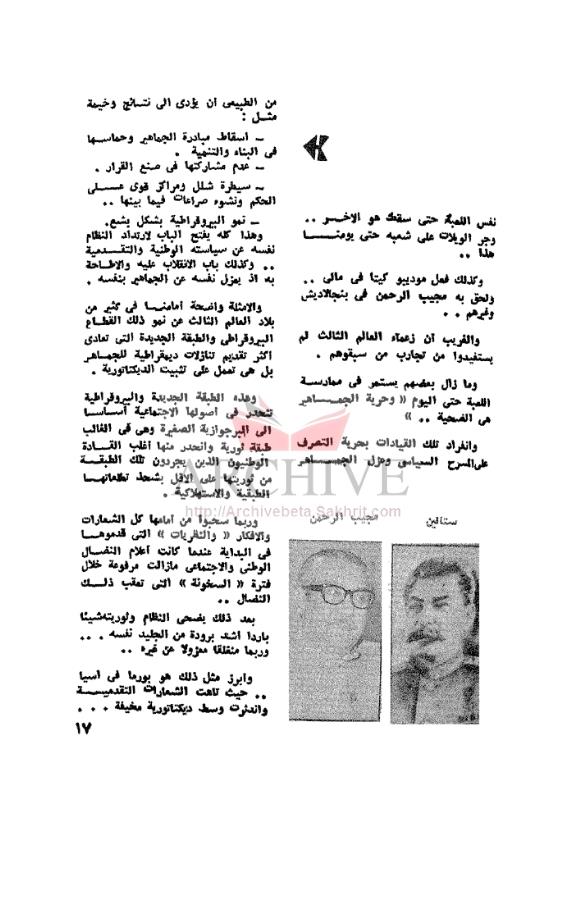 نفس اللعبة حتى سقط هو الاخـــر ..
وجر الويلات على شعبه حتى يومنـــا
هذا ..
وكذلك فعل موديبو كيتا في مالي ..
ولحق به مجيب الرحمن في بنجالاديش
وغيرهم . .
والغريب أن زعماء العالم الثالث لم
يستفيدوا من تجارب من سبقوهم .
وما زال بعضهم يستمر في ممارســة
اللعبة حتى اليوم « وحرية الجمـــاهير
هى الضحية .. »
وانفراد تلك القيادات بحرية التصرف
على المسرح السياسى وعزل الجمـــاهير
من الطبيعى أن يؤدى الى نتــائج وخيمة
مثــل :
ــ اسقاط مبادرة الجماهير وحماســها
فى البناء والتنمية .
ــ عدم مشاركتها فى صنع القرار .
ــ سيطرة شلل ومراكز قوى عـــلى
الحكم ونشوء صراعات فيما بينها ..
ــ نمو البيروقراطية بشكل بشع.
وهذا كله يفتح الباب لارتداد النظام
نفسه عن سياسته الوطنية والتقــدمية
.. وكذلك باب الانقلاب عليه والاطــاحة
به اذ يعزل نفسه عن الجماهير بنفسه .
والامثلة واضحة أمامنــا فى كثير من
بلاد العالم الثالث عن نمو ذلك القطــاع
البيروقراطى والطبقة الجديدة التى تعادى
أكثر تقديم تنازلات ديمقراطية للجمــاهر
بل هى تعمل على تثبيت الديكتاتورية .
وهذه الطبقة الجديدة والبيروقراطية
تنحدر فى أصولها الاجتماعية أســاسا
الى البرجوازية الصغيرة وهى فى الغالب
طبقة ثورية وانحدر منها أغلب القــادة
الوطنيون الذين يجردون تلك الطبقــة
من ثوريتها على الاقل بشحذ تطلعاتهــا
الطبقية والاستهلاكية .
وربما سحبوا من أمامها كل الشعارات
والافكار « والنظريات » التى قدموهــا
فى البداية عندما كانت أعلام النضــال
الوطنى والاجتماعى مازالت مرفوعة خلال
فترة « السخونة » التى تعقب ذلــك
النضال ..
بعد ذلك يضحى النظام وثوريته شيئا
باردا أشد برودة من الجليد نفسه . ..
وربما منغلقا معزولا عن غيره ..
وأبرز مثل ذلك هو بورما فى آسيا
.. حيث تاهت الشعارات التقدميــــة
واندثرت وسط ديكتاتورية مخيفة . . .
ستالين
مجيب الرحمن
١٧
ARCHIVE
http://Archivebeta.Sakhrit.com